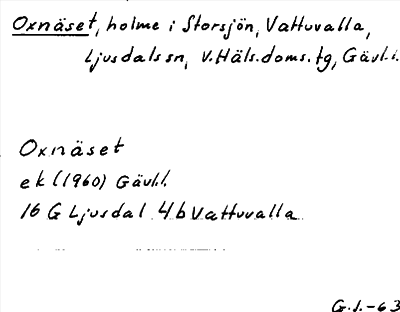 Oxnäset, holme i Storsjön, Vattuvalla,
Ljusdals sn, V.Häls.doms.tg, Gävl.l.
Oxnäset
ek (1960) Gävl.l.
16 G Ljusdal 4b Vattuvalla
G.J.-63